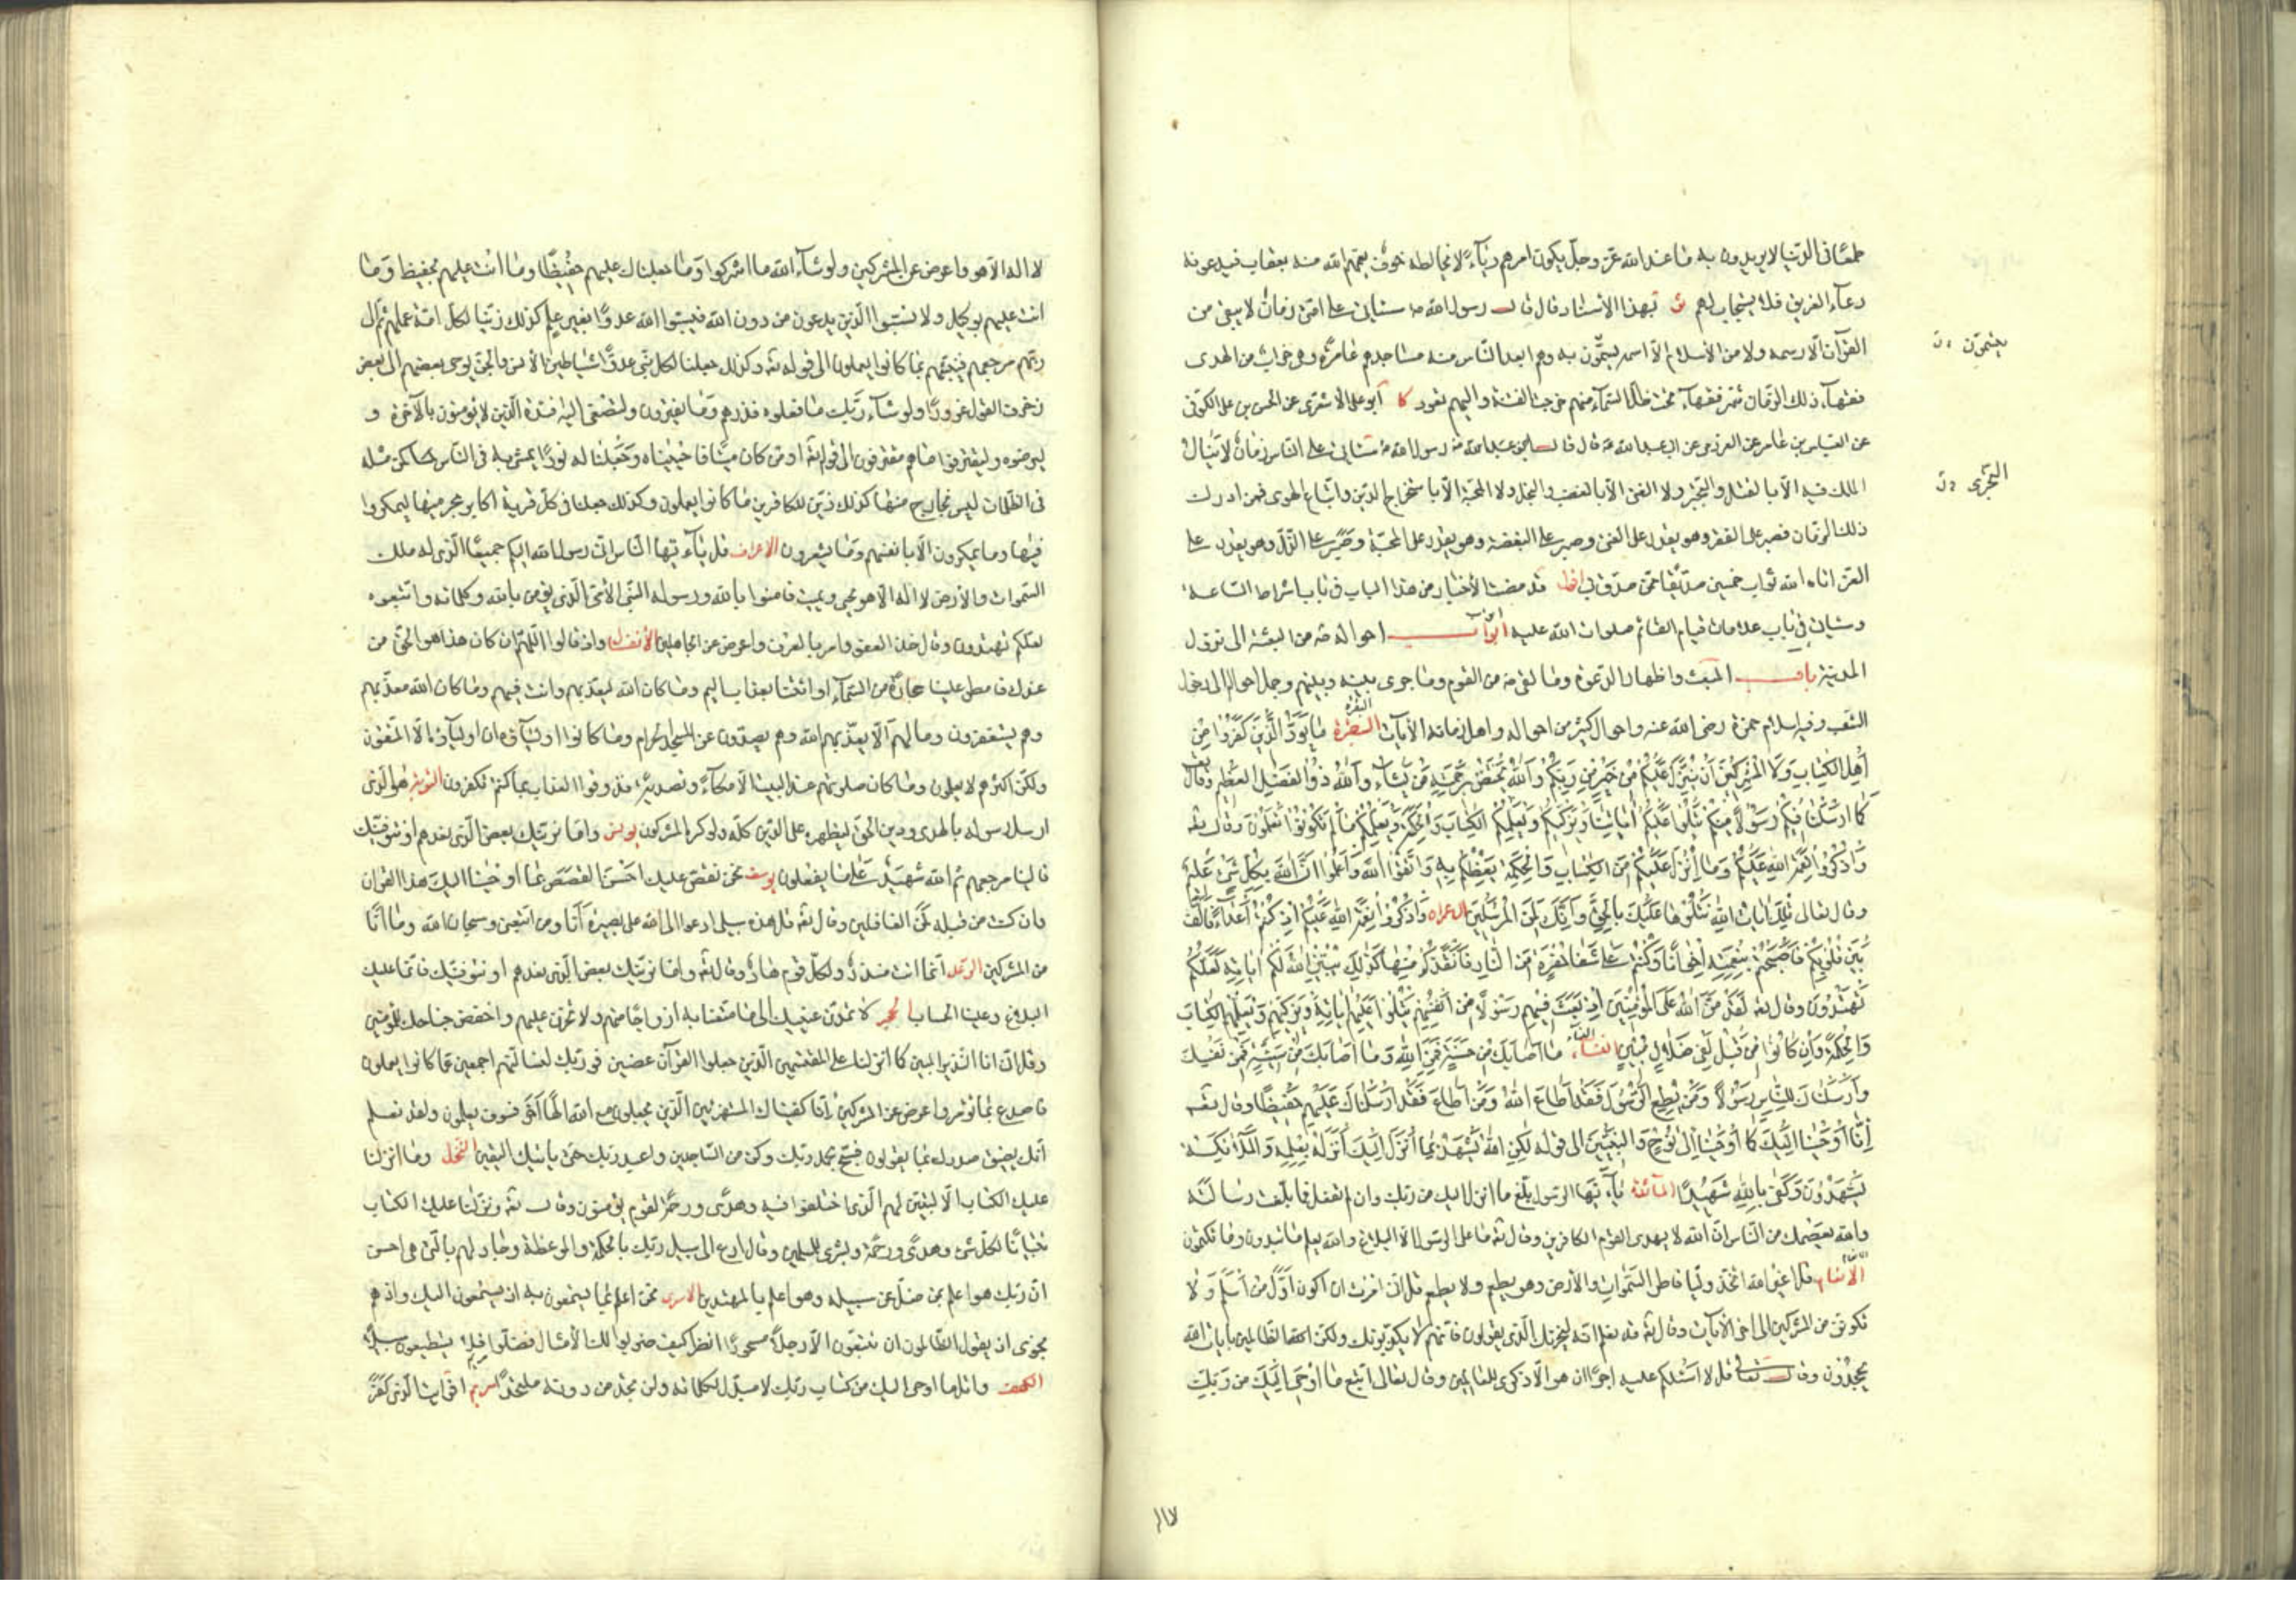 طمعًا فى الدّنيا لا يريدون به ما عند الله عزّ وجلّ يكون امرهم رياءً لا يخالطه خوف يعمّهم الله منه بعقاب فيدعونه
دعآء الغريق فلا يستجاب لهم ثو بهذا الأسناد قال قال رسول الله ص سيأتى على امتى زمان لا يبقى من
القرآن الّا رسمه ولا من الأسلام الّا اسمه يسمّون به وهم ابعد النّاس منه مساجدهم عامرة وهى خراب من الهدى
فقهآء ذلك الزمان شرّ فقهآء تحت ظلّ السّمآء منهم خرجت الفتنة واليهم تعود كا ابو على الأشعرى عن الحسن بن على الكوفى
عن العبّاس بن عامر عن العرزمى عن ابى عبد الله ع قال قال رسول الله ص سيأتى على النّاس زمان لا ينال
الملك فيه الّا بالقتل والتجبّر ولا الغنى الّا بالغصب والبخل ولا المحبّة الّا باستخراج الدّين واتّباع الهوى فمن ادرك
ذلك الزمان فصبر على الفقر وهو يقدر على الغنى وصبر على البغضة وهو يقدر على المحبّة وصبر على الذّلّ وهو يقدر على
العزّ اتاه الله ثواب خمسين صدّيقا ممّن صدّق بى اقول قد مضت الأخبار من هذا الباب فى باب اشراط السّاعة
وسيأتى فى باب علامات قيام القائم صلوات الله عليه ابواب احواله ص من البعثة الى نزول
المدينة باب المبعث واظهار الدّعوة وما لقى ص من القوم وما جرى بينه وبينهم وجمل احواله الى دخول
الشّعب وفيه اسلام حمزة رضى الله عنه واحوال كثير من احواله واهل زمانه الآيات البقرة ما يودّ الّذين كفروا من
أهل الكتاب ولا المشركين أن ينزّل عليكم من خير من ربّكم والله يختصّ برحمته من يشاء والله ذو الفضل العظيم وقال تع
كما ارسلنا فيكم رسولًا منكم يتلوا عليكم آياتنا ويزكّيكم ويعلّمكم الكتاب والحكمة ويعلّمكم ما لم تكونوا تعلمون وقال تع
واذكروا نعمة الله عليكم وما أنزل عليكم من الكتاب والحكمة يعظكم به واتّقوا الله واعلموا انّ الله بكلّ شئ عليم
وقال تعالى تلك آيات الله نتلوها عليك بالحقّ وانّك لمن المرسلين ال عمران واذكروا نعمة الله عليكم اذ كنتم أعداءً فألّف
بين قلوبكم فأصبحتم بنعمته إخوانًا وكنتم على شفا حفرة من النّار فأنقذكم منها كذلك يبيّن الله لكم آياته لعلّكم
تهتدون وقال تع لقد منّ الله على المؤمنين اذ بعث فيهم رسولًا من أنفسهم يتلوا عليهم آياته ويزكّيهم ويعلّمهم الكتاب
والحكمة وان كانوا من قبل لفى ضلال مبين النساء ما أصابك من حسنة فمن الله وما أصابك من سيّئة فمن نفسك
وأرسلناك للنّاس رسولًا ومن يطع الرّسول فقد أطاع الله فما أرسلناك عليهم حفيظًا وقال تع
إنّا أوحينا إليك كما أوحينا إلى نوح والنّبيّين الى قوله لكن الله يشهد بما أنزل إليك أنزله بعلمه والملآئكة
يشهدون وكفى بالله شهيدًا المآئدة يآ أيّها الرّسول بلّغ ما انزل اليك من ربّك وان لم تفعل فما بلّغت رسالته
والله يعصمك من النّاس انّ الله لا يهدى القوم الكافرين وقال تع ما على الرّسول الّا البلاغ والله يعلم ما تبدون وما تكتمون
الأنعام قل اغير الله اتّخذ وليّا فاطر السّموات والأرض وهو يطعم ولا يطعم قل انّى امرت ان اكون اوّل من اسلم ولا
تكوننّ من المشركين الى اخر الآيات وقال تع قد نعلم انّه ليحزنك الّذى يقولون فانّهم لا يكذّبونك ولكنّ الظّالمين بآيات الله
يجحدون وقال تعالى قل لا اسئلكم عليه اجرًا ان هو الّا ذكرى للعالمين وقال تعالى اتّبع ما اوحى اليك من ربّك
يسمّون
التجبّر
١١٧
لا اله الّا هو واعرض عن المشركين ولو شآء الله ما اشركوا وما جعلناك عليهم حفيظًا وما انت عليهم بحفيظ وما
انت عليهم بوكيل ولا تسبّوا الّذين يدعون من دون الله فيسبّوا الله عدوًا بغير علم كذلك زيّنا لكلّ امّة عملهم ثمّ الى
ربّهم مرجعهم فينبّئهم بما كانوا يعملون الى قوله تع وكذلك جعلنا لكلّ نبىّ عدوًّا شياطين الأنس والجنّ يوحى بعضهم الى بعض
زخرف القول غرورًا ولو شآء ربّك ما فعلوه فذرهم وما يفترون ولتصغى اليه افئدة الّذين لا يؤمنون بالآخرة و
ليرضوه وليقترفوا ما هم مقترفون الى قوله تع او من كان ميتًا فاحييناه وجعلنا له نورًا يمشى به فى النّاس كمن مثله
فى الظّلمات ليس بخارج منها كذلك زيّن للكافرين ما كانوا يعملون وكذلك جعلنا فى كلّ قرية اكابر مجرميها ليمكروا
فيها وما يمكرون الّا بانفسهم وما يشعرون الاعراف قل يآ أيّها النّاس انّى رسول الله اليكم جميعًا الّذى له ملك
السّموات والأرض لا اله الّا هو يحيى ويميت فامنوا بالله ورسوله النّبى الأمّى الّذى يؤمن بالله وكلماته واتّبعوه
لعلّكم تهتدون وقال خذ العفو وامر بالعرف واعرض عن الجاهلين الأنفال واذ قالوا اللّهمّ ان كان هذا هو الحقّ من
عندك فامطر علينا حجارة من السّمآء او ائتنا بعذاب اليم وما كان الله ليعذّبهم وانت فيهم وما كان الله معذّبهم
وهم يستغفرون وما لهم الّا يعذّبهم الله وهم يصدّون عن المسجد الحرام وما كانوا اوليآءه ان اوليآؤه الّا المتّقون
ولكنّ اكثرهم لا يعلمون وما كان صلوتهم عند البيت الّا مكآءً وتصدية فذوقوا العذاب بما كنتم تكفرون التّوبة هو الّذى
ارسل رسوله بالهدى ودين الحقّ ليظهره على الدّين كلّه ولو كره المشركون يونس وامّا نرينّك بعض الّذى نعدهم او نتوفّينّك
فالينا مرجعهم ثم الله شهيد على ما يفعلون يوسف نحن نقصّ عليك احسن القصص بما اوحينا اليك هذا القرآن
وان كنت من قبله لمن الغافلين وقال تع قل هذه سبيلى ادعوا الى الله على بصيرة أنا ومن اتّبعنى وسبحان الله وما أنا
من المشركين الرّعد انّما انت منذر ولكلّ قوم هاد وقال تع وامّا نرينّك بعض الّذى نعدهم او نتوفّينّك فانّما عليك
البلاغ وعلينا الحساب الحجر لا تمدّنّ عينيك الى ما متّعنا به ازواجًا منهم ولا تحزن عليهم واخفض جناحك للمؤمنين
وقل انّى انا النّذير المبين كما انزلنا على المقتسمين الّذين جعلوا القرآن عضين فو ربّك لنسألنّهم اجمعين عمّا كانوا يعملون
فاصدع بما تؤمر واعرض عن المشركين إنّا كفيناك المستهزئين الّذين يجعلون مع الله الهًا آخر فسوف يعلمون ولقد نعلم
أنّك يضيق صدرك بما يقولون فسبّح بحمد ربّك وكن من السّاجدين واعبد ربّك حتى يأتيك اليقين النّحل وما انزلنا
عليك الكتاب الّا لتبيّن لهم الّذى اختلفوا فيه وهدًى ورحمة لقوم يؤمنون وقال تع ونزّلنا عليك الكتاب
تبيانًا لكلّ شئ وهدًى ورحمة وبشرى للمسلمين وقال ادع الى سبيل ربّك بالحكمة والموعظة وجادلهم بالّتى هى احسن
انّ ربّك هو اعلم بمن ضلّ عن سبيله وهو اعلم بالمهتدين الاسرى نحن اعلم بما يستمعون به اذ يستمعون اليك واذ هم
نجوى اذ يقول الظّالمون ان تتّبعون الّا رجلًا مسحورًا انظر كيف ضربوا لك الأمثال فضلّوا فلا يستطيعون سبيلًا
الكهف واتل ما اوحى اليك من كتاب ربّك لا مبدّل لكلماته ولن تجد من دونه ملتحدًا مريم افرأيت الّذى كفر